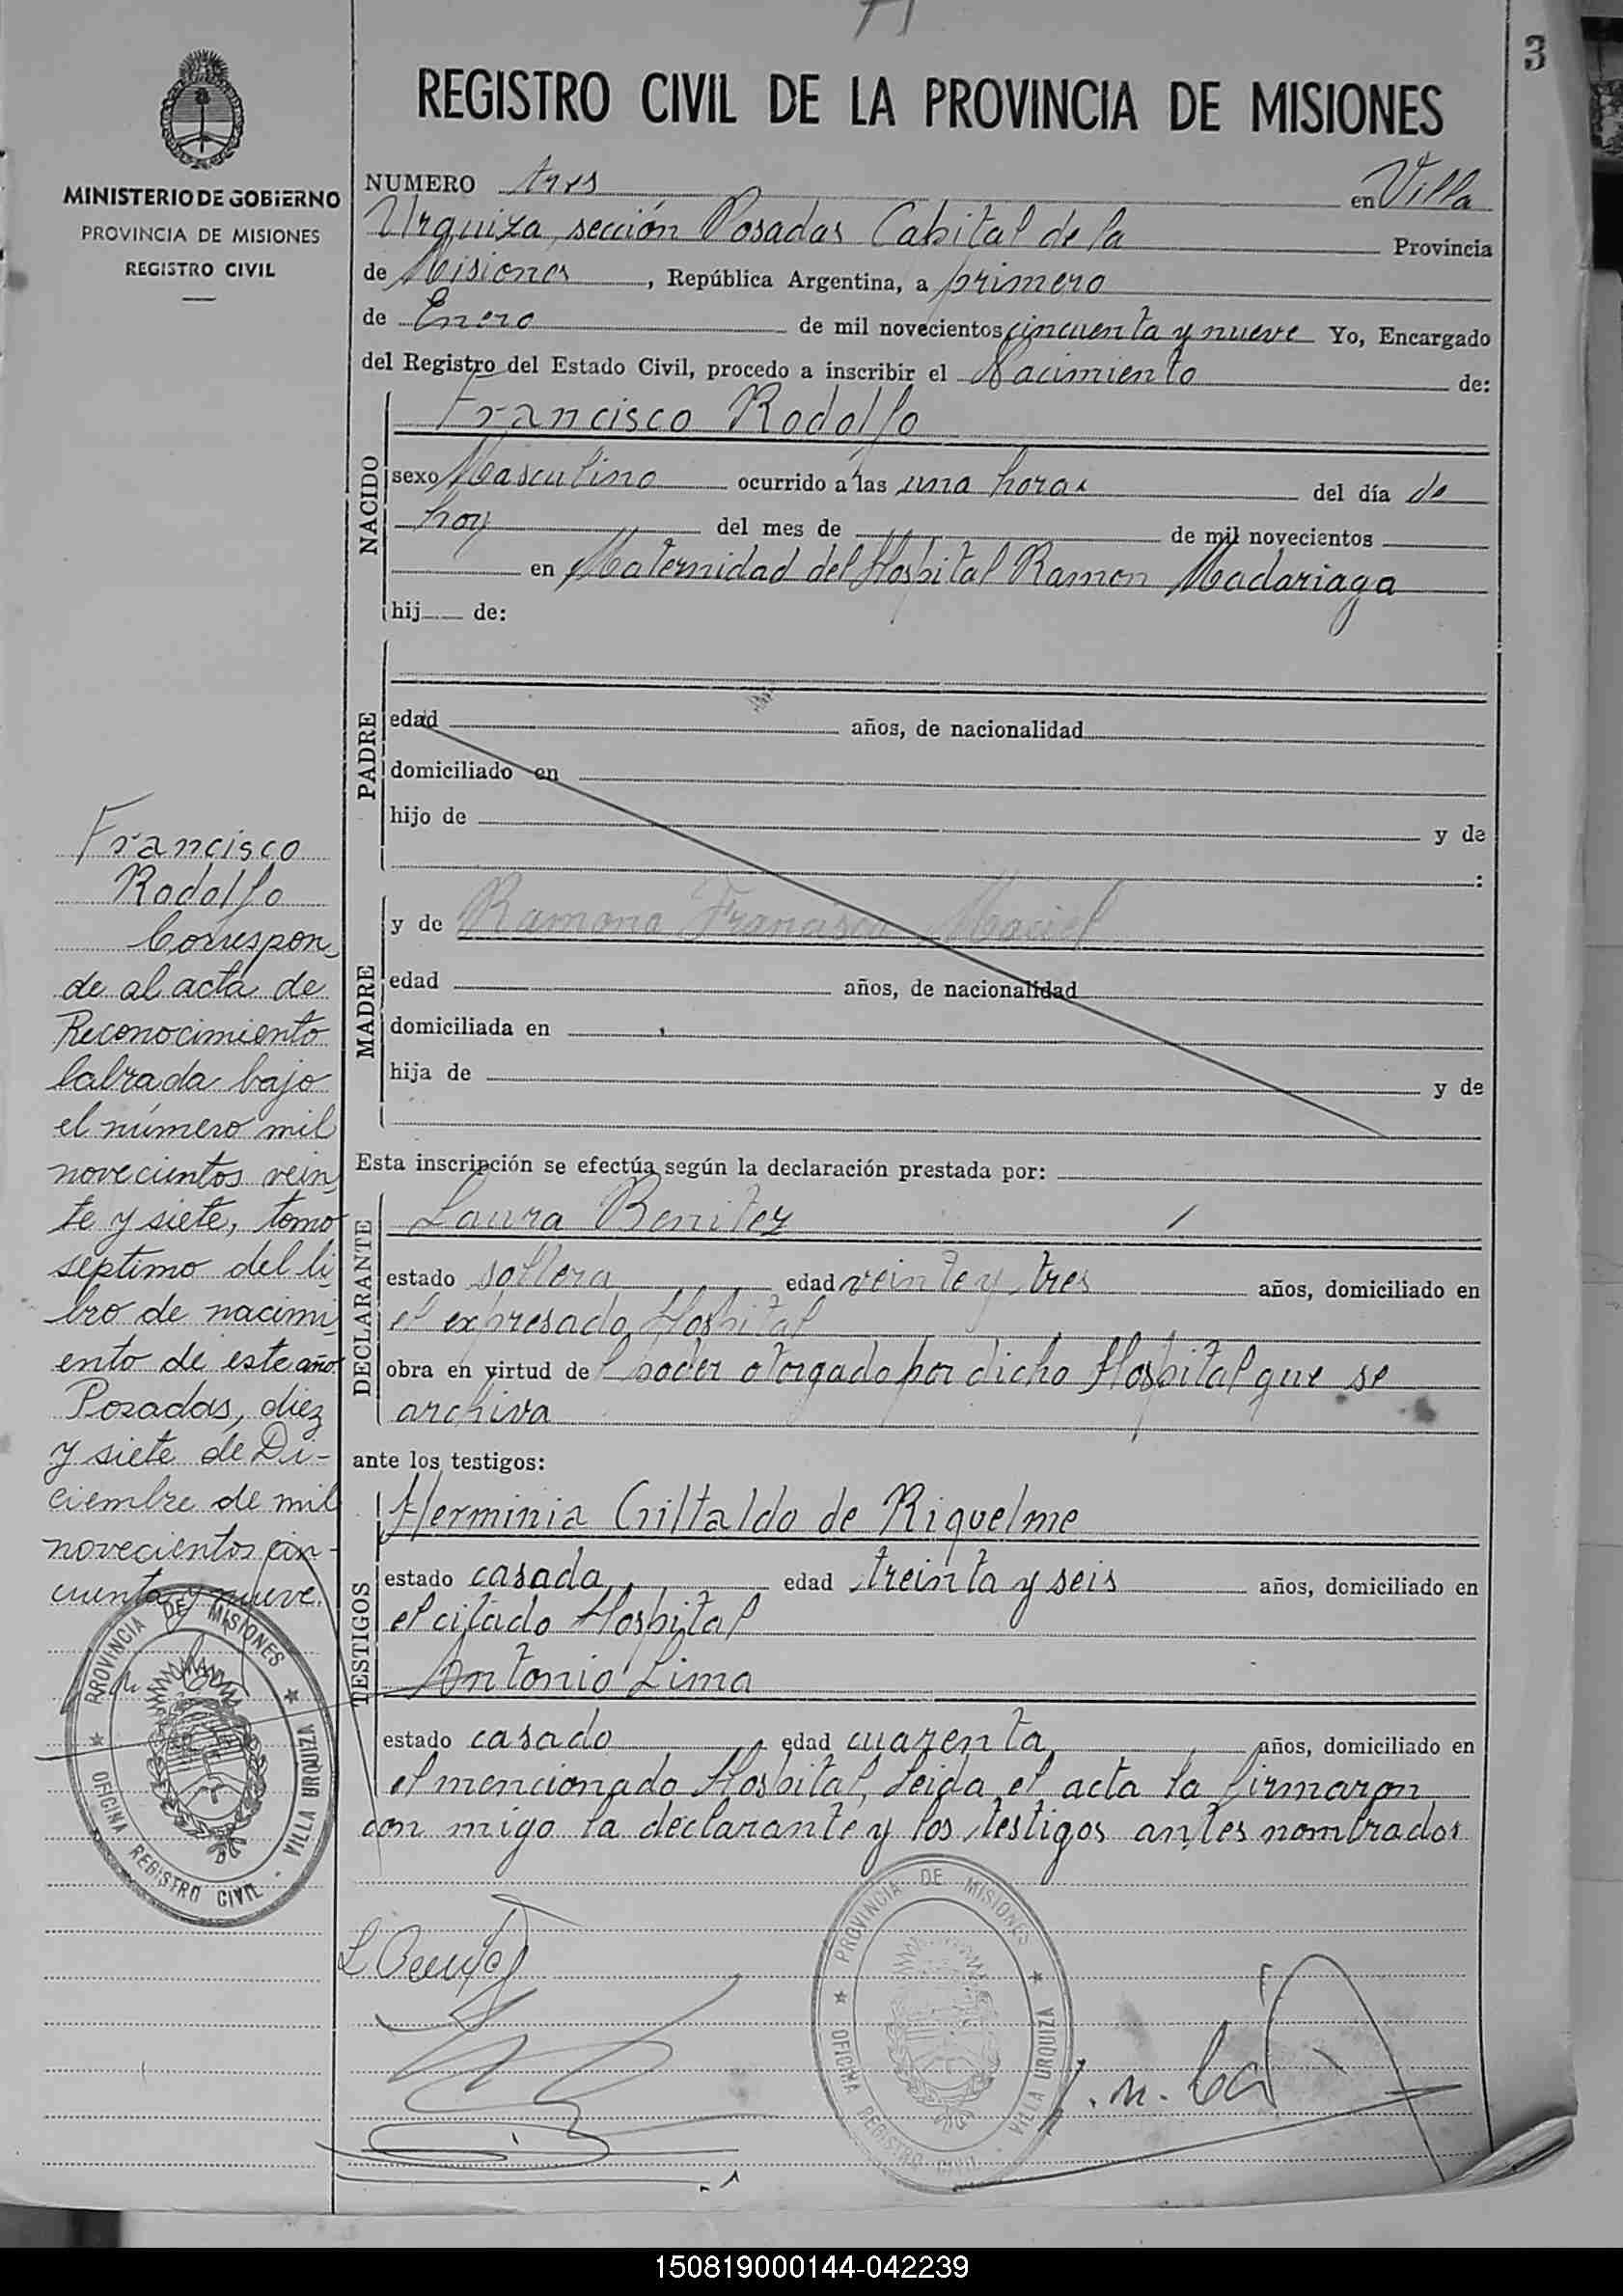 3
REGISTRO CIVIL DE LA PROVINCIA DE MISIONES
MINISTERIO DE GOBIERNO
PROVINCIA DE MISIONES
REGISTRO CIVIL
NUMERO tres en Villa
Urquiza, sección Posadas Capital de la Provincia
de Misiones, República Argentina, a primero
de Enero de mil novecientos cincuenta y nueve Yo, Encargado
del Registro del Estado Civil, procedo a inscribir el Nacimiento de:
NACIDO
Francisco Rodolfo
sexo Masculino ocurrido a las una horas del día de
hoy del mes de de mil novecientos
en Maternidad del Hospital Ramon Madariaga
hij de:
PADRE
edad años, de nacionalidad
domiciliado en
hijo de y de
:
MADRE
y de Ramona Francisca Maciel
edad años, de nacionalidad
domiciliada en
hija de y de
Esta inscripción se efectúa según la declaración prestada por:
DECLARANTE
Laura Benitez
estado soltera edad veinte y tres años, domiciliado en
el expresado Hospital
obra en virtud del poder otorgado por dicho Hospital que se
archiva
ante los testigos:
TESTIGOS
Herminia Giltaldo de Riquelme
estado casada edad treinta y seis años, domiciliado en
el citado Hospital
Antonio Lima
estado casado edad cuarenta años, domiciliado en
el mencionado Hospital, leida el acta la firmaron
con migo la declarante y los testigos antes nombrados
Francisco
Rodolfo
Correspon
de al acta de
Reconocimiento
labrada bajo
el número mil
novecientos vein
te y siete, tomo
septimo del li
bro de nacimi
ento de este año.
Posadas, diez
y siete de Di-
ciembre de mil
novecientos cin-
cuenta y nueve.
PROVINCIA DE MISIONES
OFICINA REGISTRO CIVIL - VILLA URQUIZA
PROVINCIA DE MISIONES
OFICINA REGISTRO CIVIL - VILLA URQUIZA
150819000144-042239